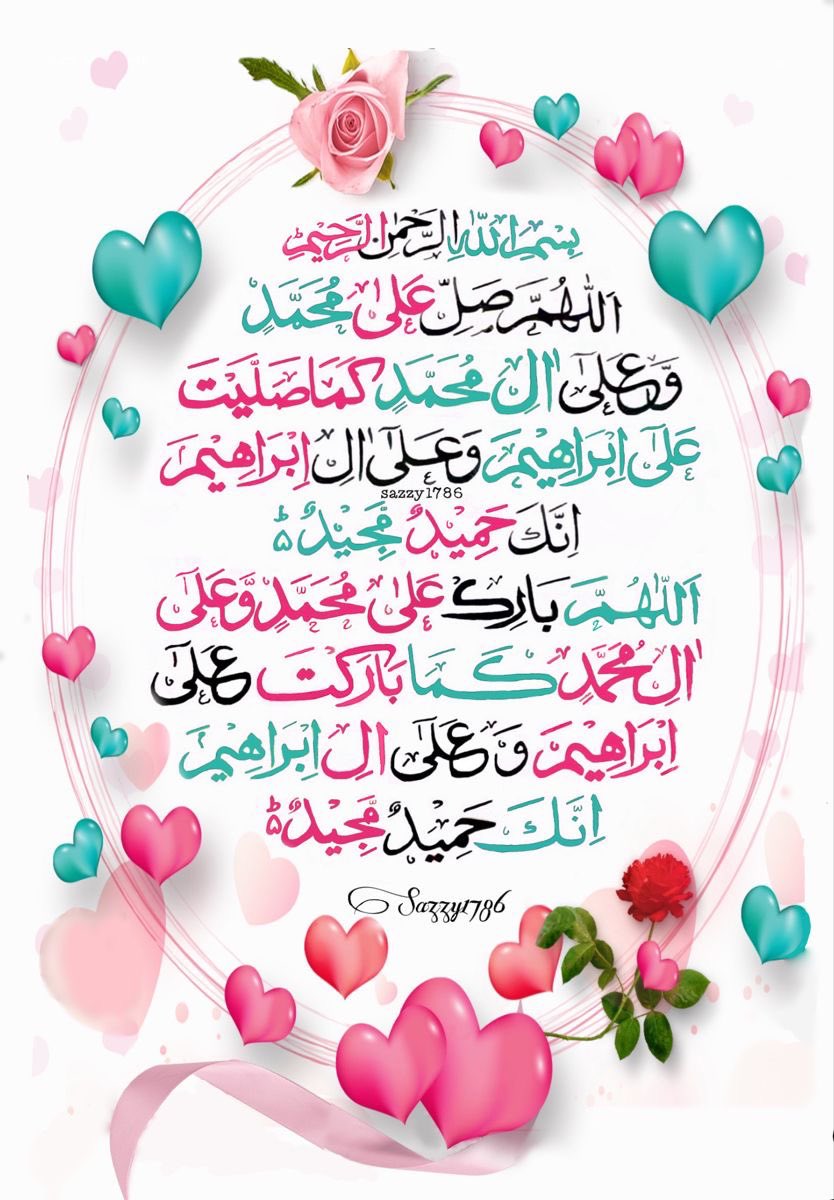 بِسْمِ اللّٰهِ الرَّحْمٰنِ الرَّحِيْمِ
اَللّٰهُمَّ صَلِّ عَلٰى مُحَمَّدٍ
وَّعَلٰٓى اٰلِ مُحَمَّدٍ كَمَا صَلَّيْتَ
عَلٰٓى اِبْرَاهِيْمَ وَعَلٰٓى اٰلِ اِبْرَاهِيْمَ
sazzy1786
اِنَّكَ حَمِيْدٌ مَّجِيْدٌ ۵
اَللّٰهُمَّ بَارِكْ عَلٰى مُحَمَّدٍ وَّعَلٰٓى
اٰلِ مُحَمَّدٍ كَمَا بَارَكْتَ عَلٰٓى
اِبْرَاهِيْمَ وَعَلٰٓى اٰلِ اِبْرَاهِيْمَ
اِنَّكَ حَمِيْدٌ مَّجِيْدٌ ۵
Sazzy1786